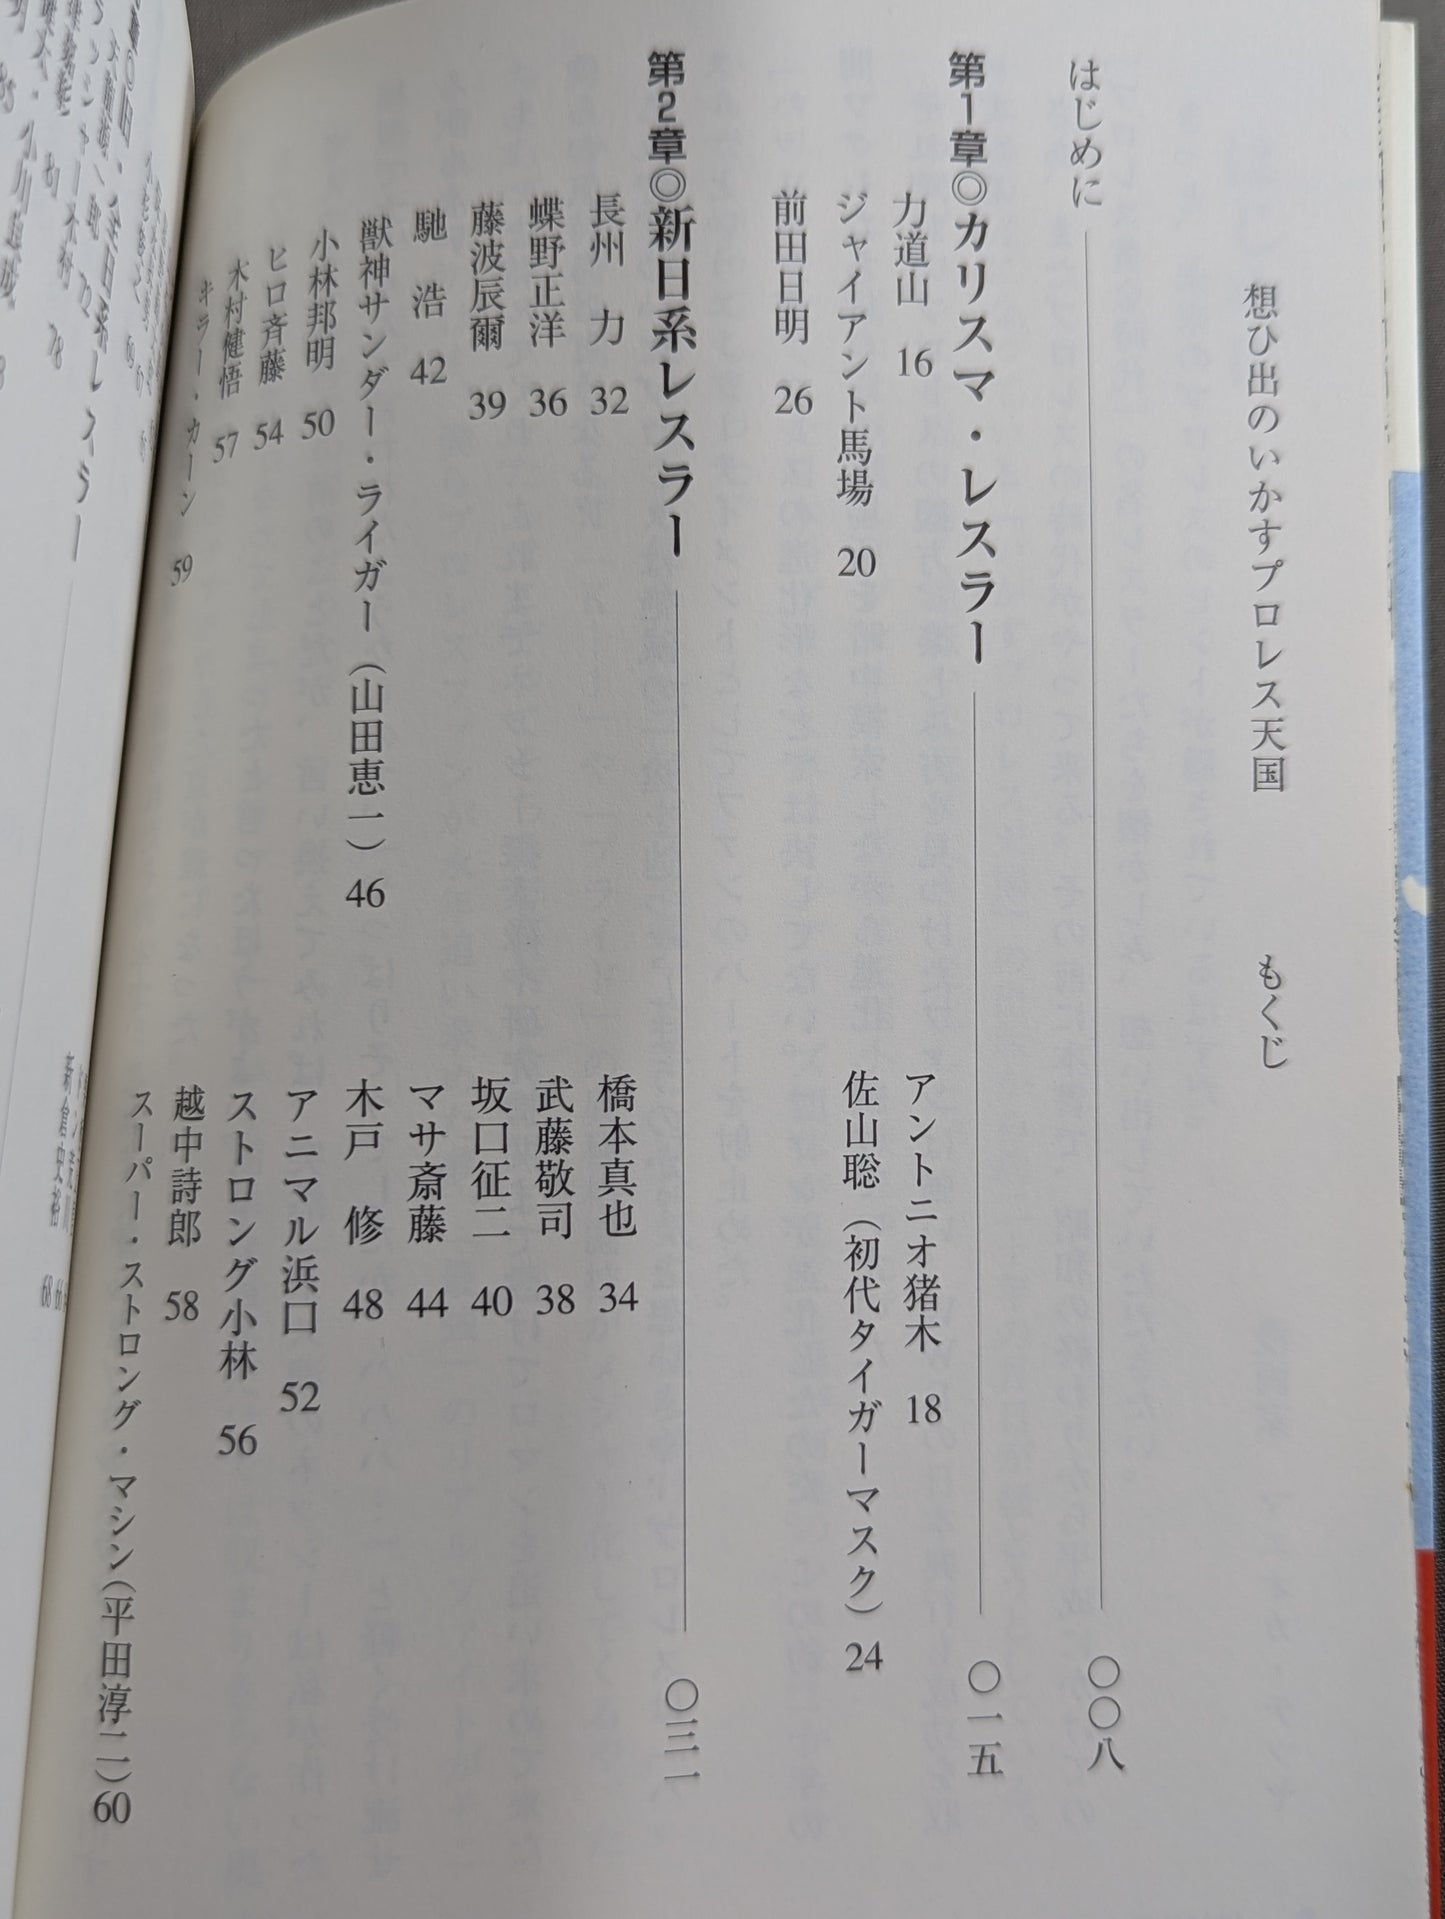 想ひ出のいかすプロレス天国　もくじ
はじめに　〇〇八
第1章◎カリスマ・レスラー　〇一五
力道山　16
アントニオ猪木　18
ジャイアント馬場　20
佐山聡（初代タイガーマスク）　24
前田日明　26
第2章◎新日系レスラー　〇三一
長州　力　32
橋本真也　34
蝶野正洋　36
武藤敬司　38
藤波辰爾　39
坂口征二　40
馳　浩　42
マサ斎藤　44
獣神サンダー・ライガー（山田恵一）　46
木戸　修　48
小林邦明　50
アニマル浜口　52
ヒロ斉藤　54
ストロング小林　56
木村健悟　57
越中詩郎　58
キラー・カーン　59
スーパー・ストロング・マシン（平田淳二）60
新倉史裕　68